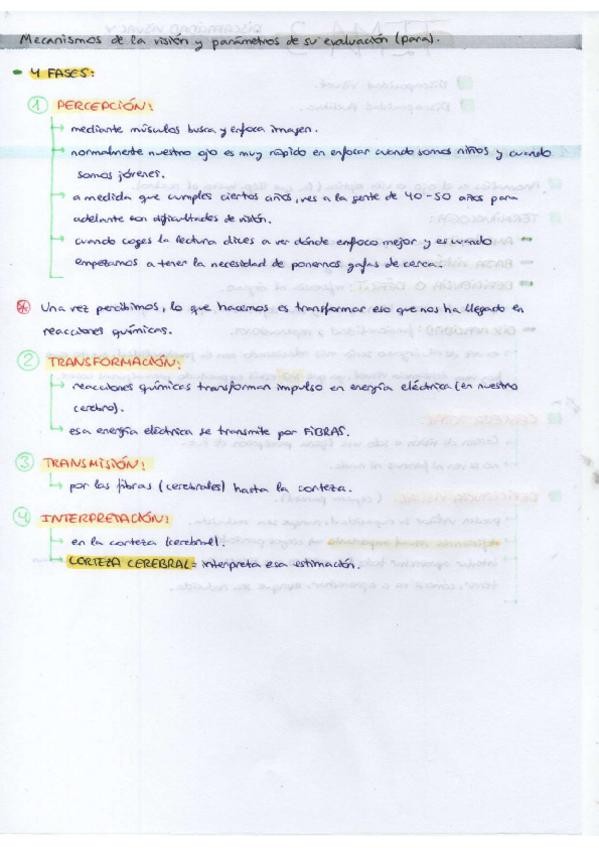 Mecanismos de la visión y parámetros de su evaluación (para).
4 FASES:
1 PERCEPCIÓN:
mediante músculos busca y enfoca imagen.
normalmente nuestro ojo es muy rápido en enfocar cuando somos niños y cuando
somos jóvenes.
a medida que cumples ciertos años, ves a la gente de 40-50 años para
adelante con dificultades de visión.
cuando coges la lectura dices a ver dónde enfoco mejor y es cuando
empezamos a tener la necesidad de ponernos gafas de cerca.
* Una vez percibimos, lo que hacemos es transformar eso que nos ha llegado en
reacciones químicas.
2 TRANSFORMACIÓN:
reacciones químicas transforman impulso en energía eléctrica (en nuestro
cerebro).
esa energía eléctrica se transmite por FIBRAS.
3 TRANSMISIÓN:
por las fibras (cerebrales) hasta la corteza.
4 INTERPRETACIÓN:
en la corteza (cerebral).
CORTEZA CEREBRAL = interpreta esa estimación.